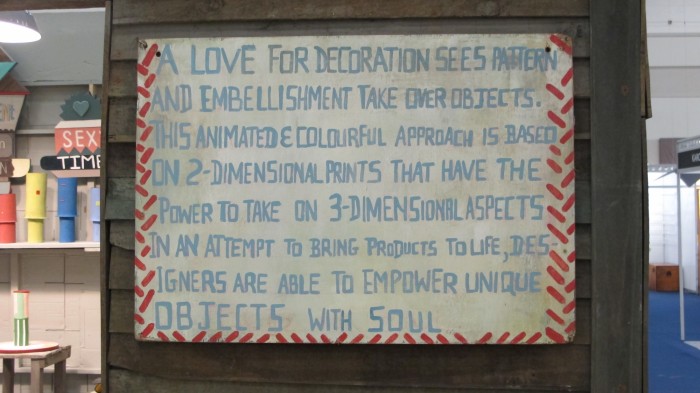 A LOVE FOR DECORATION SEES PATTERN
AND EMBELLISHMENT TAKE OVER OBJECTS.
THIS ANIMATED & COLOURFUL APPROACH IS BASED
ON 2-DIMENSIONAL PRINTS THAT HAVE THE
POWER TO TAKE ON 3-DIMENSIONAL ASPECTS
IN AN ATTEMPT TO BRING PRODUCTS TO LIFE, DES-
IGNERS ARE ABLE TO EMPOWER UNIQUE
OBJECTS WITH SOUL
TIME